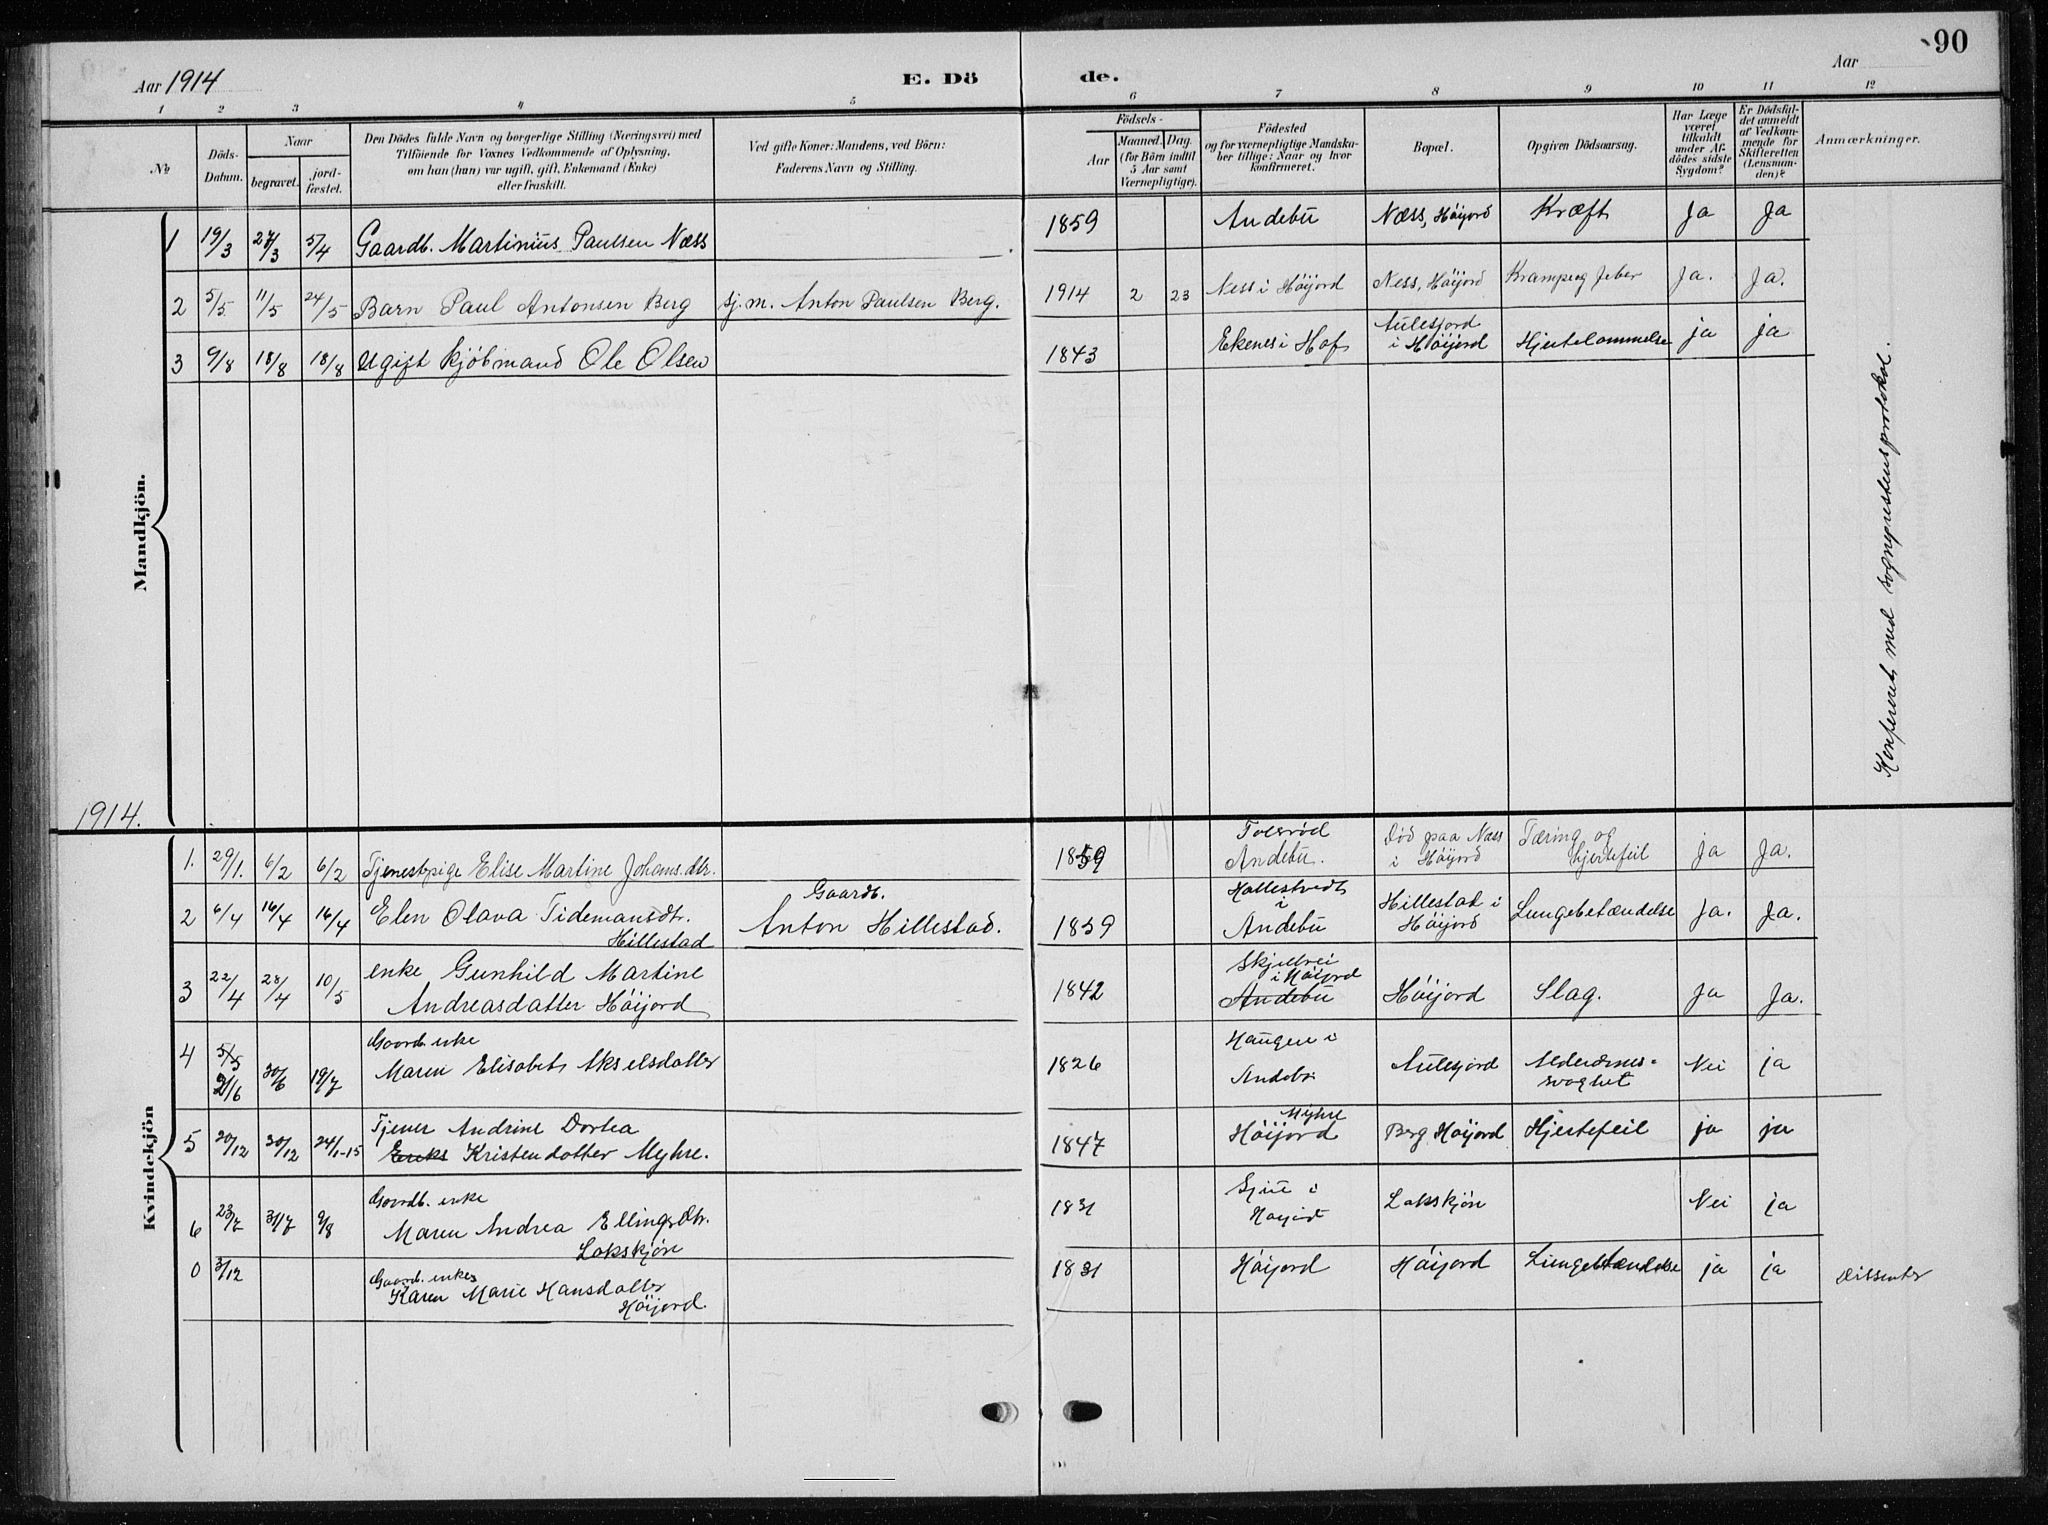 Aar 1914
E. Dö de.
Aar
90
1 2 3 4 5 6 7 8 9 10 11 12
No
Döds-Datum.
Naar
begravet.
jord-fæstet.
Den Dödes fulde Navn og borgerlige Stilling (Næringsvei) med
Tilföiende for Voxnes Vedkommende af Oplysning,
om han (hun) var ugift, gift, Enkemand (Enke)
eller fraskilt.
Ved gifte Koner: Mandens, ved Börn:
Faderens Navn og Stilling.
Födsels-
Aar
Maaned. Dag.
(for Börn indtil
5 Aar samt
Værnepligtige).
Födested
og for værnepligtige Mandska-
ber tillige: Naar og hvor
konfirmeret.
Bopæl.
Opgiven Dödsaarsag.
Har Læge
været
tilkaldt
under Af-
dödes sidste
Sygdom?
Er Dödsfal-
det anmeldt
af Vedkom-
mende for
Skifteretten
(Lensman-
den)?
Anmærkninger.
Mandkjön.
1 19/3 27/3 5/4 Gaardb. Martinius Paulsen Næss 1859 Andebu Næss, Höijord Kræft Ja Ja
2 5/5 11/5 24/5 Barn Paul Antonsen Berg sj.m. Anton Paulsen Berg. 1914 2 23 Ness i Höijord Ness, Höijord Krampe og feber Ja. Ja.
3 9/8 18/8 18/8 Ugift kjöbmand Ole Olsen 1843 Ekenes i Hof Aulesjord
i Höijord Hjertelammelse ja ja
Konfereret med sogneprestens protokol.
1914.
Kvindekjön
1. 29/1. 6/2 6/2 Tjenestpige Elise Martine Johansdtr. 1859 Tolsröd
Andebu. Död paa Næss
i Höijord Tæring og
hjertefeil Ja Ja.
2 6/4 16/4 16/4 Elen Olava Tidemansdtr.
Hillestad Gaardb.
Anton Hillestad. 1839 Hallestvedt
i
Andebu Hillestad i
Höijord Lungebetændelse Ja. Ja.
3 22/4 28/4 10/5 enke Gunhild Martine
Andreasdatter Höijord 1842 Skjelvei
i Höijord
Andebu Höijord Slag. Ja Ja.
4 5/5
21/6 30/6 19/7 Gaardb. enke
Maren Elisabet Akselsdatter 1826 Haugen i
Andebu Aulesjord Alderdoms-
svaghet Nei ja
5 20/12 30/12 24/1-15 Tjener Andrine Dortea
Enke Kristendatter Myhre. 1847 Myhre
Höijord Berg Höijord Hjertefeil ja ja
6 23/7 31/7 9/8 Gaardb. enke
Maren Andrea Ellingsdtr.
Lakskjön 1831 i
Höijord Lakskjön Nei ja
0 3/12 Gaardb. enke
Karen Marie Hansdatter
Höijord. 1831 Höijord Höijord Lungebetændelse ja ja Dissenter